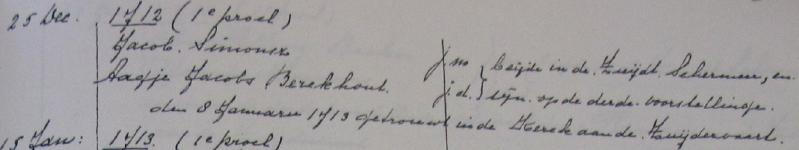 25 Dec. 1712 (1e procl)
Jacob. Simonsz j.m. beijde in de. Zuijdt. Schermer, en.
Aagje Jacobs Berckhout. j.d. zijn. op de derde. voorstellinge.
den 8 Januarij 1713 getrouwt in de Kerck aan de. Zuijdervaart.
15 Jan: 1713. (1e procl)